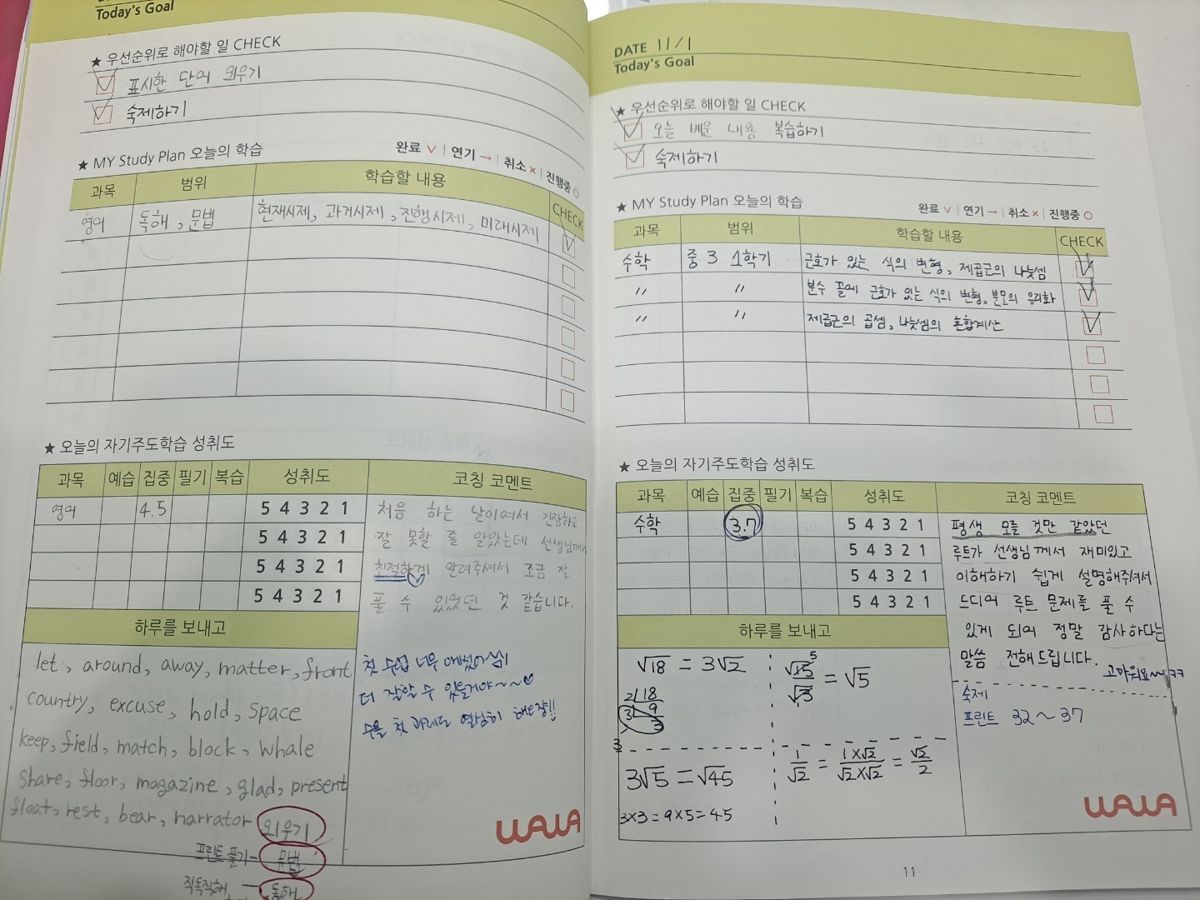 Today's Goal
★ 우선순위로 해야할 일 CHECK
표시한 단어 외우기
숙제하기
★ MY Study Plan 오늘의 학습
완료 ∨ | 연기 → | 취소 × | 진행중 ○
과목 범위 학습할 내용 CHECK
영어 독해, 문법 현재시제, 과거시제, 진행시제, 미래시제
★ 오늘의 자기주도학습 성취도
과목 예습 집중 필기 복습 성취도 코칭 코멘트
영어 4.5 5 4 3 2 1
5 4 3 2 1
5 4 3 2 1
5 4 3 2 1
처음 하는 날이여서 긴장하고
잘 못할 줄 알았는데 선생님께서
친절하게 알려주셔서 조금 잘
풀 수 있었던 것 같습니다.
첫 수업 너무 애썼어
더 잘할 수 있을거야~~♡
첫 과제도 열심히 해보장!!
하루를 보내고
let, around, away, matter, front
country, excuse, hold, space
keep, field, match, block, whale
share, floor, magazine, glad, present
float, rest, bear, narrator 외우기
프린트 풀기 - 문법
직독직해 - 독해
WAWA
DATE 11/1
Today's Goal
★ 우선순위로 해야할 일 CHECK
오늘 배운 내용 복습하기
숙제하기
★ MY Study Plan 오늘의 학습
완료 ∨ | 연기 → | 취소 × | 진행중 ○
과목 범위 학습할 내용 CHECK
수학 중 3 1학기 근호가 있는 식의 변형, 제곱근의 나눗셈
〃 〃 분수 꼴에 근호가 있는 식의 변형, 분모의 유리화
〃 〃 제곱근의 곱셈, 나눗셈의 혼합계산
★ 오늘의 자기주도학습 성취도
과목 예습 집중 필기 복습 성취도 코칭 코멘트
수학 3.7 5 4 3 2 1
5 4 3 2 1
5 4 3 2 1
5 4 3 2 1
평생 모를 것만 같았던
루트가 선생님께서 재미있고
이해하기 쉽게 설명해주셔서
드디어 루트 문제를 풀 수
있게 되어 정말 감사하다는
말씀 전해드립니다.
고마워요~ㅋㅋ
숙제
프린트 32~37
하루를 보내고
√18 = 3√2
2⌊18
3⌊9
3
√15/√3 = √5
5
3√5 = √45
3×3=9×5=45
1/√2 = 1×√2/√2×√2 = √2/2
WAWA
11